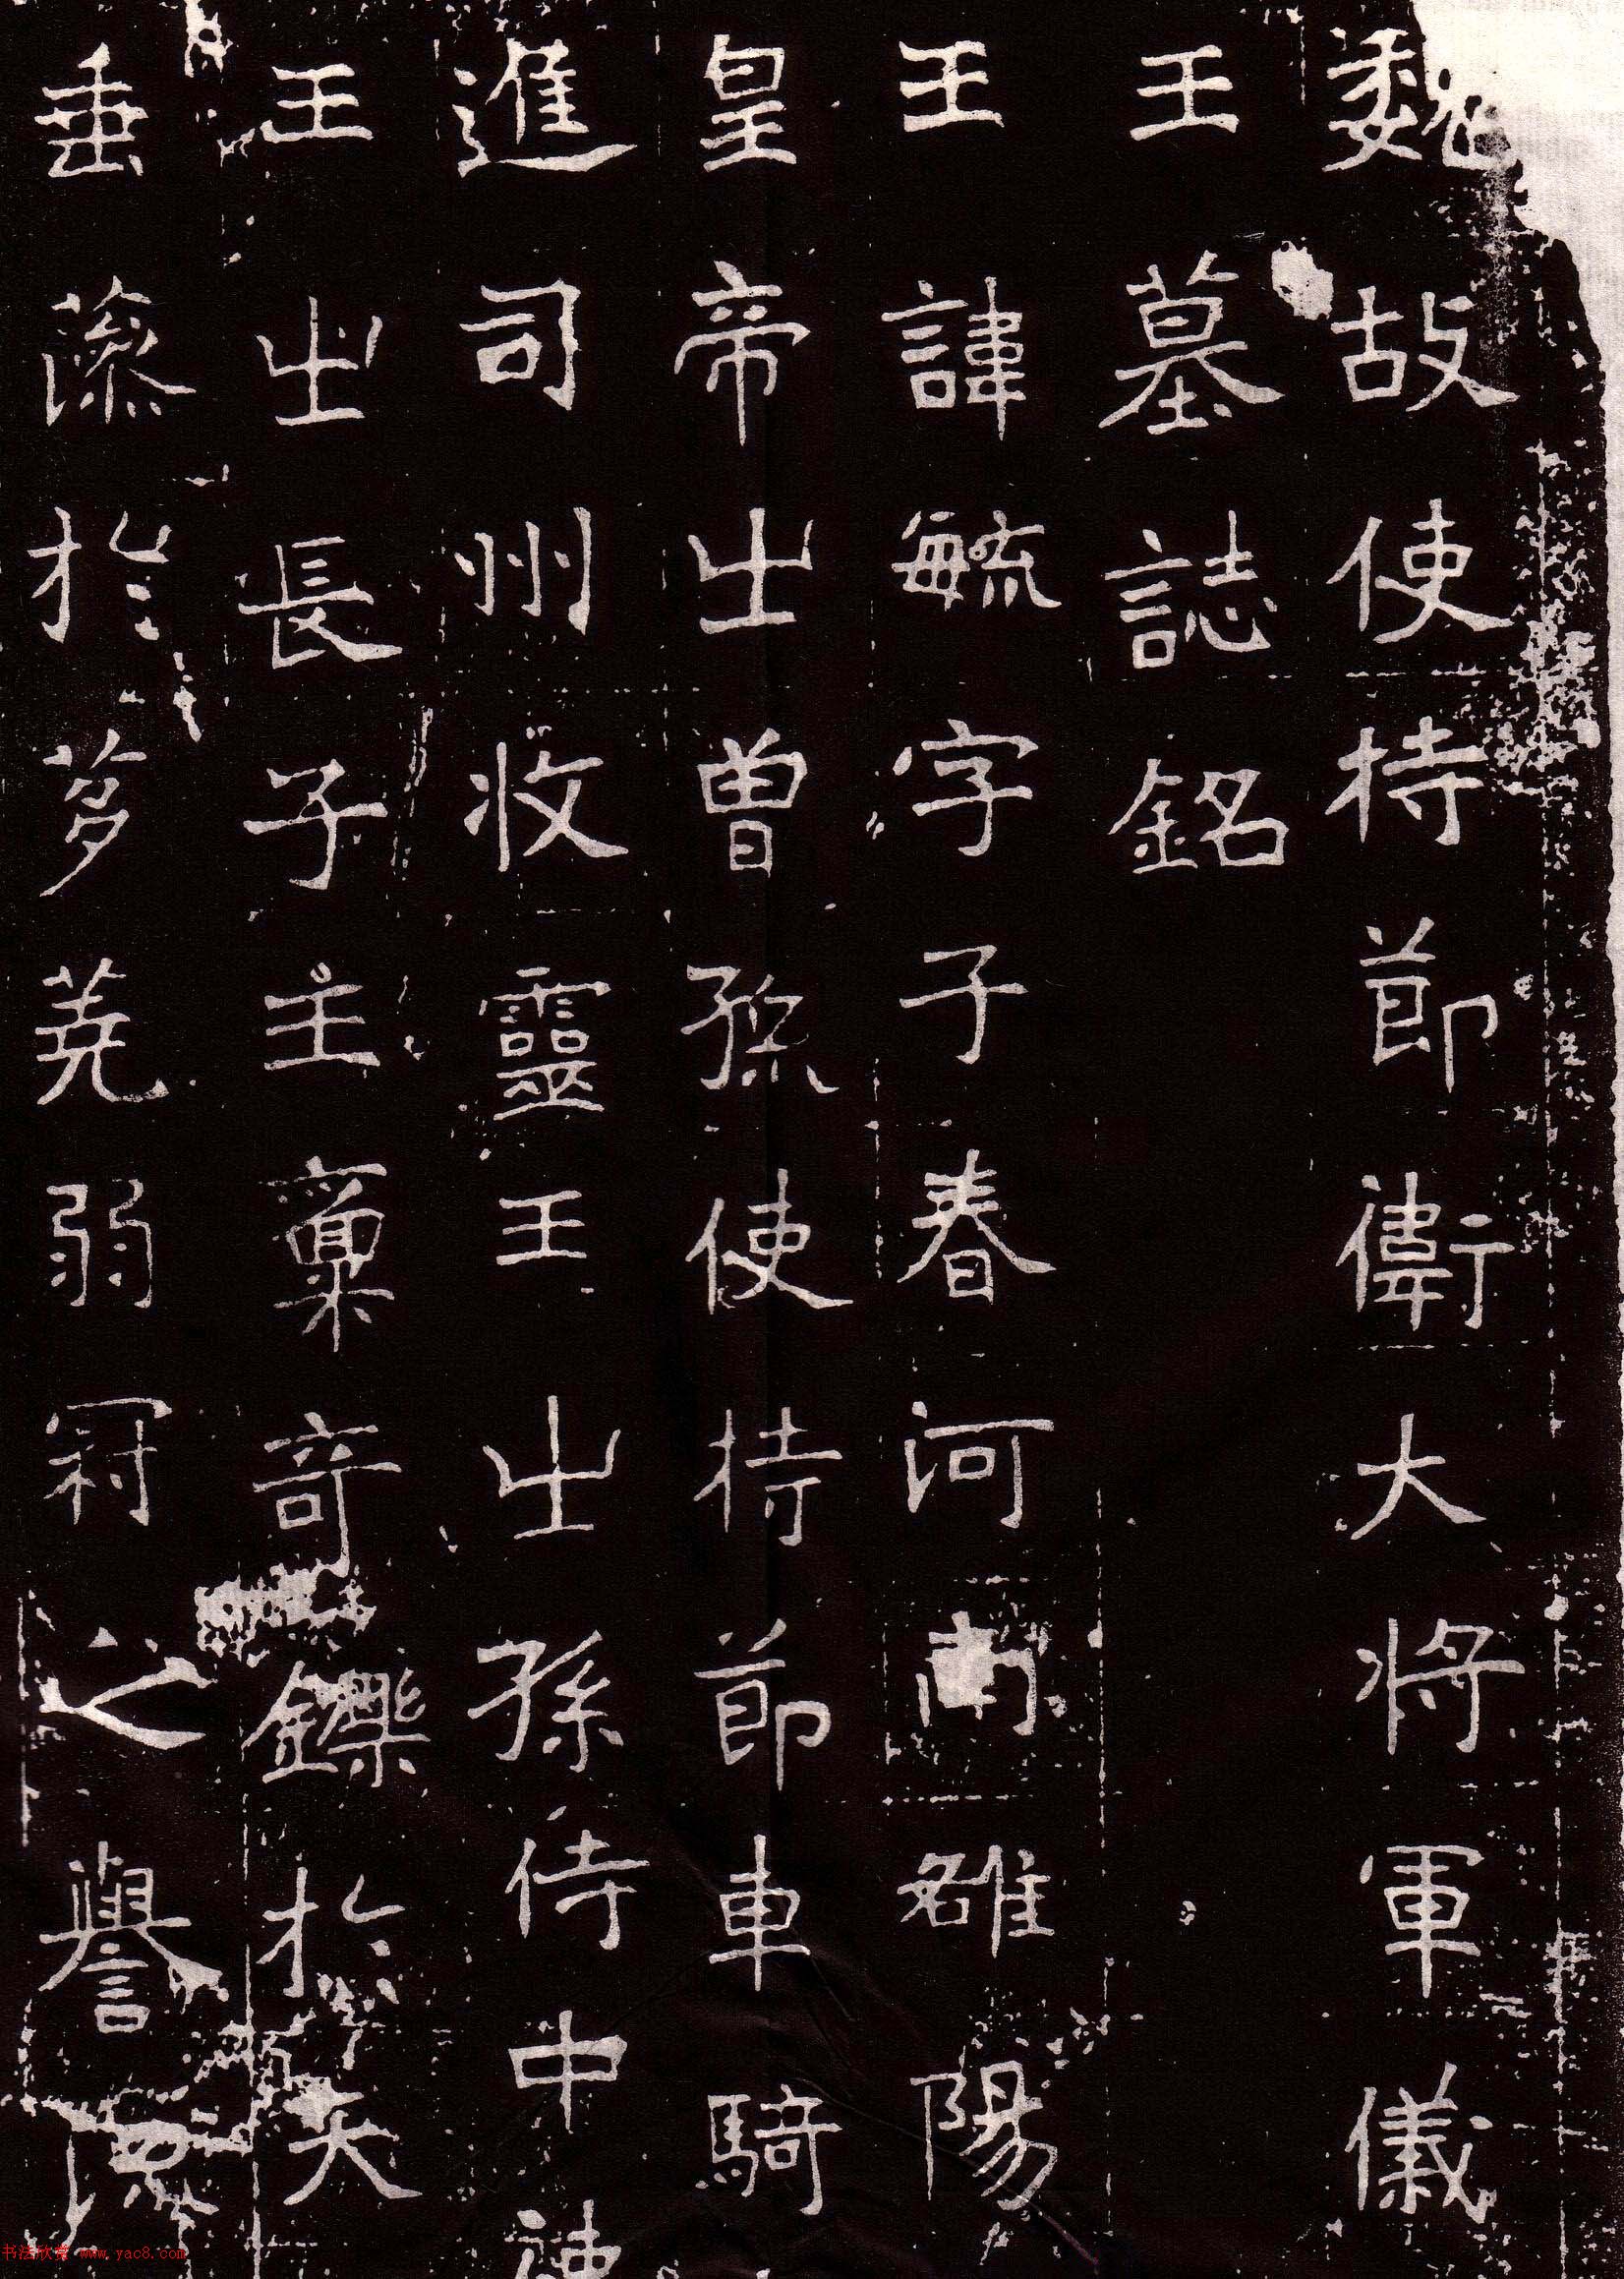 魏故使持節衛大將軍儀
王墓誌銘
王諱毓字子春河南雒陽
皇帝㞢曾孫使持節車騎
進司州牧靈王㞢孫侍中
王㞢長子王稟奇鑠於天
垂蔭於芻蕘弱冠之譽
书法欣赏 www.yac8.com